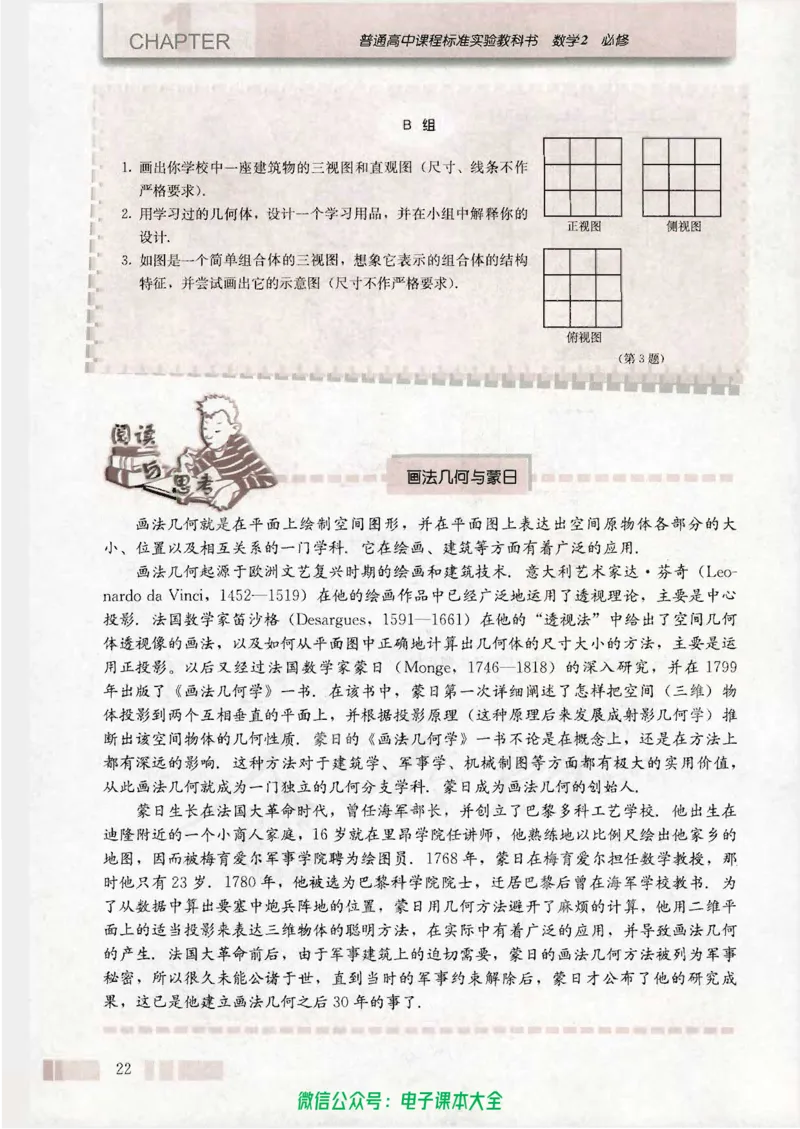 1
CHAPTER
普通高中课程标准实验教科书 数学2 必修
B 组
1. 画出你学校中一座建筑物的三视图和直观图（尺寸、线条不作
严格要求）.
2. 用学习过的几何体，设计一个学习用品，并在小组中解释你的
设计.
3. 如图是一个简单组合体的三视图，想象它表示的组合体的结构
特征，并尝试画出它的示意图（尺寸不作严格要求）.
正视图
侧视图
俯视图
（第3题）
阅读
与
思考
画法几何与蒙日
画法几何就是在平面上绘制空间图形，并在平面图上表达出空间原物体各部分的大
小、位置以及相互关系的一门学科. 它在绘画、建筑等方面有着广泛的应用.
画法几何起源于欧洲文艺复兴时期的绘画和建筑技术. 意大利艺术家达·芬奇（Leo-
nardo da Vinci，1452—1519）在他的绘画作品中已经广泛地运用了透视理论，主要是中心
投影. 法国数学家笛沙格（Desargues，1591—1661）在他的“透视法”中给出了空间几何
体透视像的画法，以及如何从平面图中正确地计算出几何体的尺寸大小的方法，主要是运
用正投影。以后又经过法国数学家蒙日（Monge，1746—1818）的深入研究，并在 1799
年出版了《画法几何学》一书. 在该书中，蒙日第一次详细阐述了怎样把空间（三维）物
体投影到两个互相垂直的平面上，并根据投影原理（这种原理后来发展成射影几何学）推
断出该空间物体的几何性质. 蒙日的《画法几何学》一书不论是在概念上，还是在方法上
都有深远的影响. 这种方法对于建筑学、军事学、机械制图等方面都有极大的实用价值，
从此画法几何就成为一门独立的几何分支学科. 蒙日成为画法几何的创始人.
蒙日生长在法国大革命时代，曾任海军部长，并创立了巴黎多科工艺学校. 他出生在
迪隆附近的一个小商人家庭，16 岁就在里昂学院任讲师，他熟练地以比例尺绘出他家乡的
地图，因而被梅育爱尔军事学院聘为绘图员. 1768 年，蒙日在梅育爱尔担任数学教授，那
时他只有 23 岁. 1780 年，他被选为巴黎科学院院士，迁居巴黎后曾在海军学校教书. 为
了从数据中算出要塞中炮兵阵地的位置，蒙日用几何方法避开了麻烦的计算，他用二维平
面上的适当投影来表达三维物体的聪明方法，在实际中有着广泛的应用，并导致画法几何
的产生. 法国大革命前后，由于军事建筑上的迫切需要，蒙日的画法几何方法被列为军事
秘密，所以很久未能公诸于世，直到当时的军事约束解除后，蒙日才公布了他的研究成
果，这已是他建立画法几何之后 30 年的事了.
22
微信公众号：电子课本大全